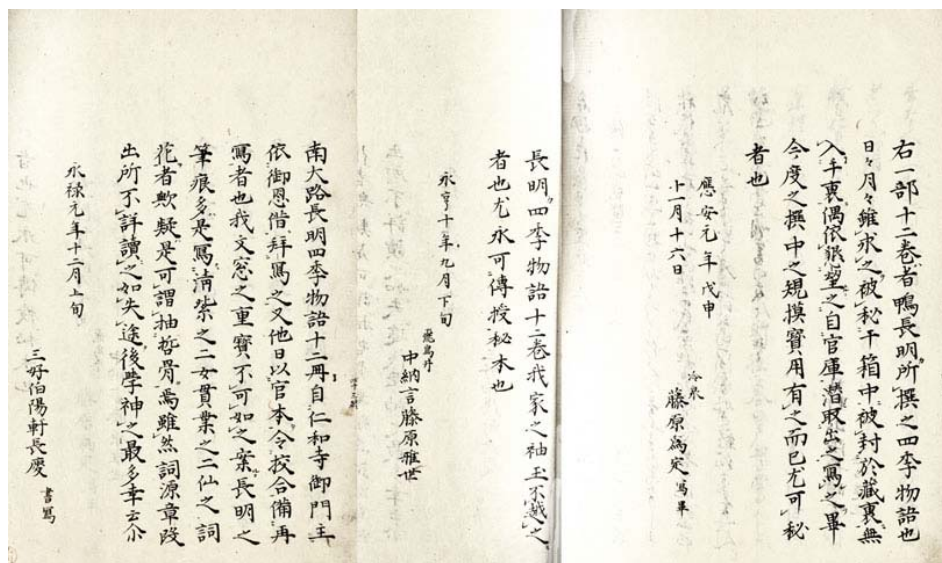 右一部十二卷者鴨長明所撰之四季物語也
日々月々雖求之被秘于箱中被封於藏裏無
入手裏偶依懇望之自官庫潜取出之寫之畢
今度之撰中之規摸寶用有之而已尤可秘
者也
應安元年戊申
十一月十六日
冷泉
藤原為定寫畢
長明四季物語十二卷我家之袖玉不越之
者也尤永可傳授秘本也
永享十年九月下旬
飛鳥井
中納言藤原雅世
南大路長明四季物語十二冊自仁和寺御門主
依御恩借拜寫之又他日以官本令挍合備再
寫者也我文窓之重寶不可如之案長明之
筆痕多是寫清紫之二女貫業之二仙之詞
花者歟疑是可謂抽哲骨焉雖然詞源章段
出所不詳讀之如失途後學神之最多幸云尓
永禄元年十二月上旬
三好伯陽軒長慶 書寫